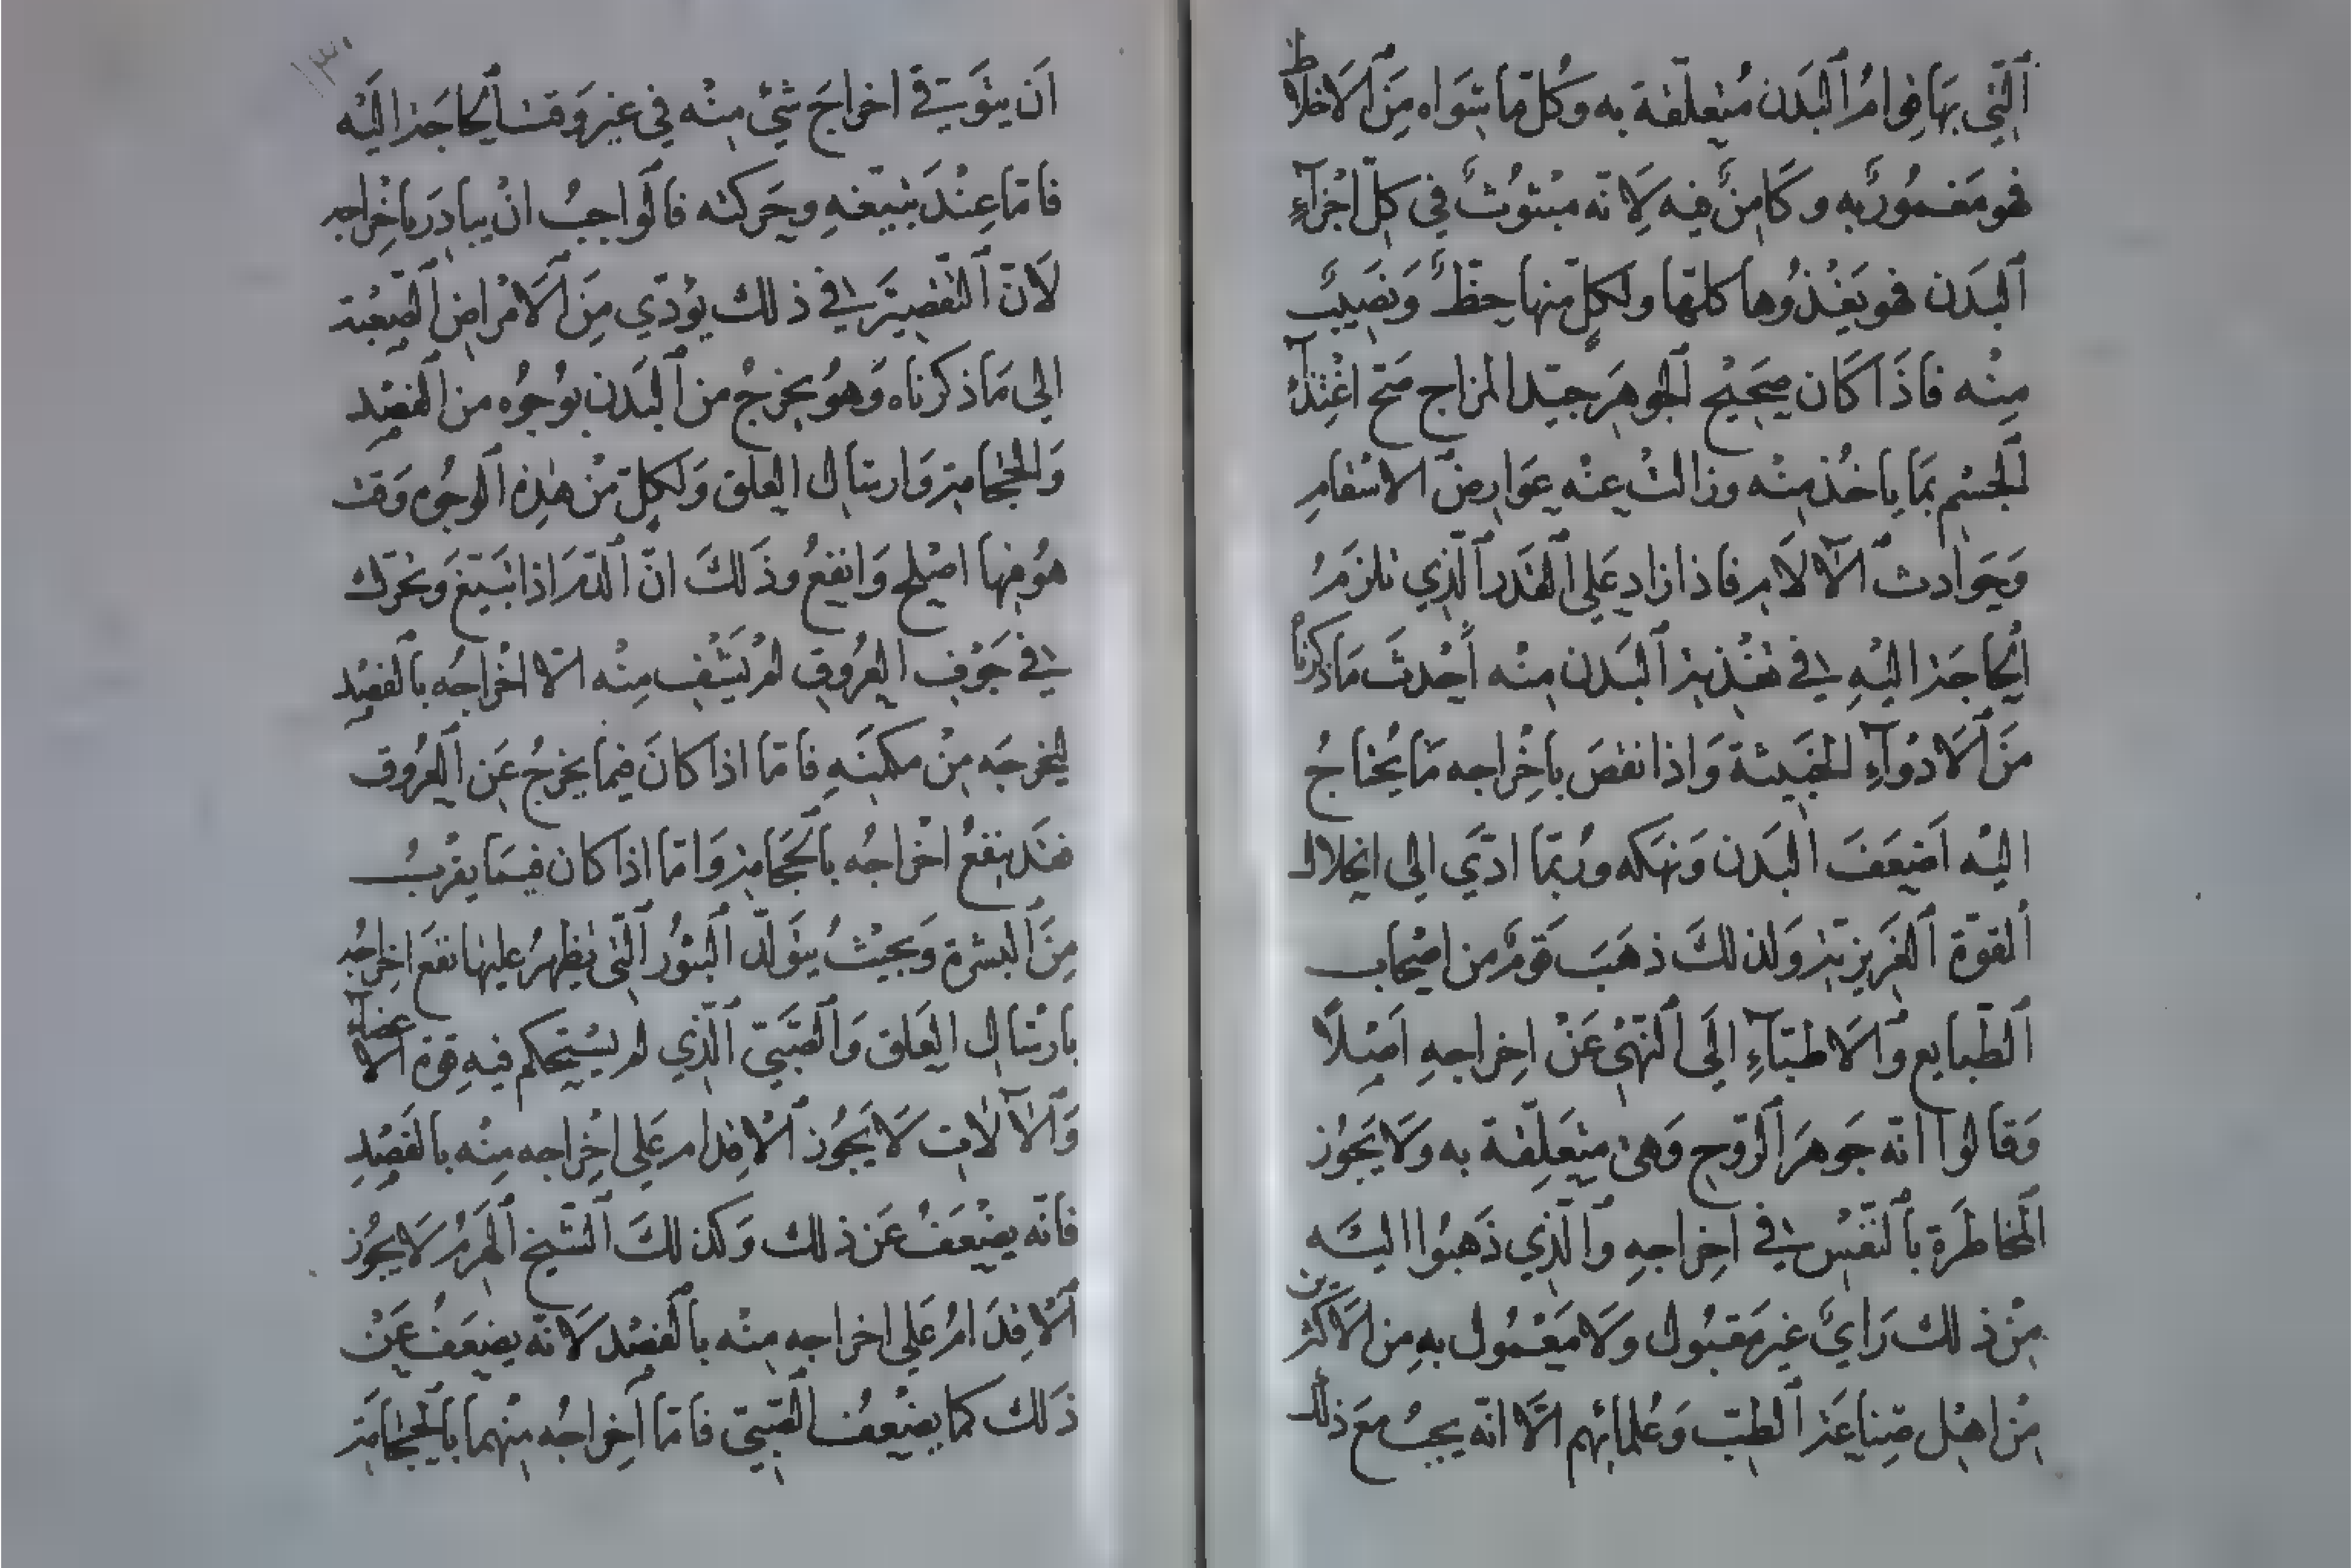 اَلَّتِي بِهَا قِوَامُ اَلبَدَن مُتعلّقة به وكُل مَا سِوَاه مِنَ اَلاَخلاط
فهو مَغمُورٌ به وكَامِنٌ فيه لِاَنّه مَبثوُثٌ في كلّ اجْزاءِ
اَلبَدَن فهو يَغْذُوها كلّها ولكلّ منها حظٌّ وَنَصِيبٌ
مِنْه فاذَا كَان صحَيْح اَلجوهَر جيّد المزاج صَحّ اغْتِذَاءُ
اَلجسْم بمَا ياخُذ مِنْه وزالتْ عنْه عوَارضَ الاسْقامِ
وَحوَادث اَلآلاَم فاذا زاد عَلى اَلقَدر اَلّذِي تلزمُ
اَلحاجَة اليْهِ في تغْذيَة اَلبَدن مِنْه أَحْدثَ مَا ذكرنَا
مَنَ اَلاَدْوَآءِ الخَبيثة وَاذا نقصَ باخِراجه مَا يُحْتاجُ
اليْه اَضْعَفَ البَدن وَنهَكه ورُبمّا ادّي الى انحلال
اَلقوّة اَلغَريزيّة وَلذلكَ ذهَبَ قَومٌ من اصْحاب
اَلطّبايع وَاَلاَطبّآءِ الَى اَلنّهْىِ عَنْ اِخراجهِ اَصْلاً
وَقالوا انّه جَوهَر اَلرّوح وَهىْ متعَلِقة به وَلاَ يَجُوز
اَلمخاطَرة باَلنّفْس في اخِراجهِ واَلّذِي ذَهبُوا اليْه
مِنْ ذلك رَايٌ غير مَقبُول وَلاَ مَعْمُول بهِ من اَلاَكثرين
مِنْ اهْل صِناعَة اَلطبّ وَعُلمائهم الاّ انّه يجبُ معَ ذلك
١٣٠
اَن يتوَقي اخراجَ شيْ مِنْه في غيْر وَقت اَلحاجَة اليْه
فامّا عِنْدَ تبيّغهِ وحَركته فاَلواجبُ انْ يبادَر باخْرِاجه
لاَنّ اَلتّقصيْرَ في ذلك يؤدّي مِنَ اَلاَمْراض اَلصّعْبة
الى مَا ذكرناه وَهوُ يخرجُ من اَلبَدن بوُجُوه من اَلفصْد
وَالحِجَامة وَارسَال العَلق وَلكلّ مْن هٰذِه اَلوجُوه وَقت
هوُ فيْها اصْلح وَانفعُ وذَلكَ انّ اَلدّمَ اذا تبَيّغَ وَتحرّك
في جَوْفِ العُروق لمْ يَشْفِ مِنْه الاّ اخْراجُه باَلفصْد
ليخرجَه مِنْ مكمَنه فامّا اذا كانَ فيمَا يخرجُ عَن اَلعُروق
فقَد ينفعُ اخْراجُه باَلحجَامة وَامّا اذا كان فيمَا يقربُ
مِنَ اَلبشرة وَبحيْثُ يتَولّد اَلبثوُر اَلّتي تظهرُ عليْها نفعَ اخِراجُه
بارْسَال العَلق وَاَلصّبَيّ اَلّذِي لم يسْتحكم فيهِ قوّة اَلاعضاء
وَاَلآلاٰت لاَ يَجُوز اَلاْقدام عَلى اخْراجه مِنْه باَلفَصْدِ
فانّه يضْعَفُ عَن ذلك وَكذلكَ اَلشّيخ اَلهَرمُ لاَ يجوُز
اَلاْقِدَامُ عَلي اخراجه مِنْه باَلفصْد لاَنّه يضعَفُ عَنْ
ذَلك كمَا يضْعفُ اَلصّبيّ فامّا اَخِراجُه مِنْهما باَلحجامَة